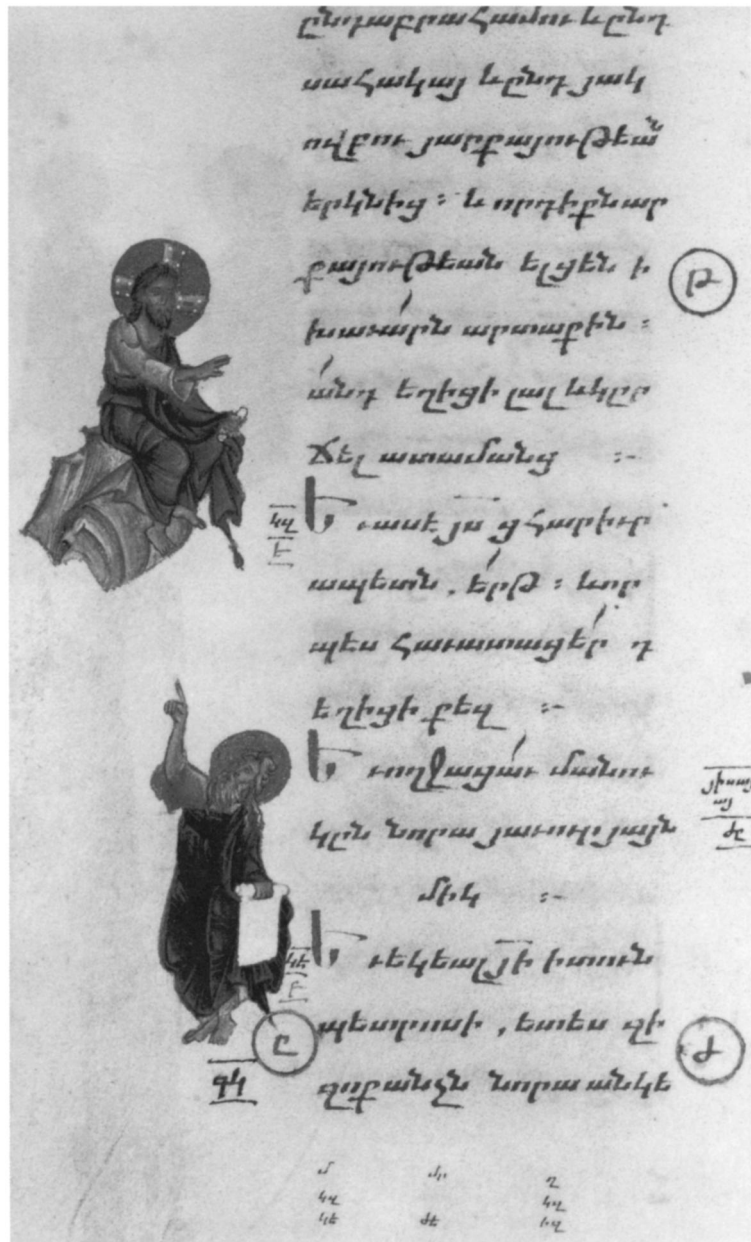 ընդ աբրահամու և ընդ
սահակայ և ընդ յակ
ովբու յարքայութեան
երկնից ։ և որդիքն ար
քայութեան ելցեն ի
խաւարն արտաքին ։
անդ եղիցի լալ և կըր
ճել ատամանց ։-
Եւ ասէ յս ց հարիւր
ապետն , երթ ։ և որ
պէս հաւատացեր դ
եղիցի քեզ ։-
Եւ ողջացաւ մանու
կըն նորա յաւուր յայն
միկ ։-
Եւ եկեալ յի ի տուն
պետրոսի , ետես զի
զոքանչն նորա անկե
Թ
կզ
է
կէ
բ
Ը
Ժ